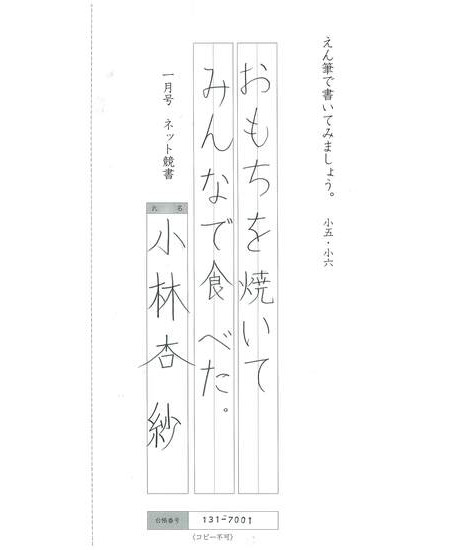 えん筆で書いてみましょう。　小五・小六
おもちを焼いて
みんなで食べた。
一月号　ネット競書
氏名
小林杏紗
台帳番号　131-7001
(コピー不可)